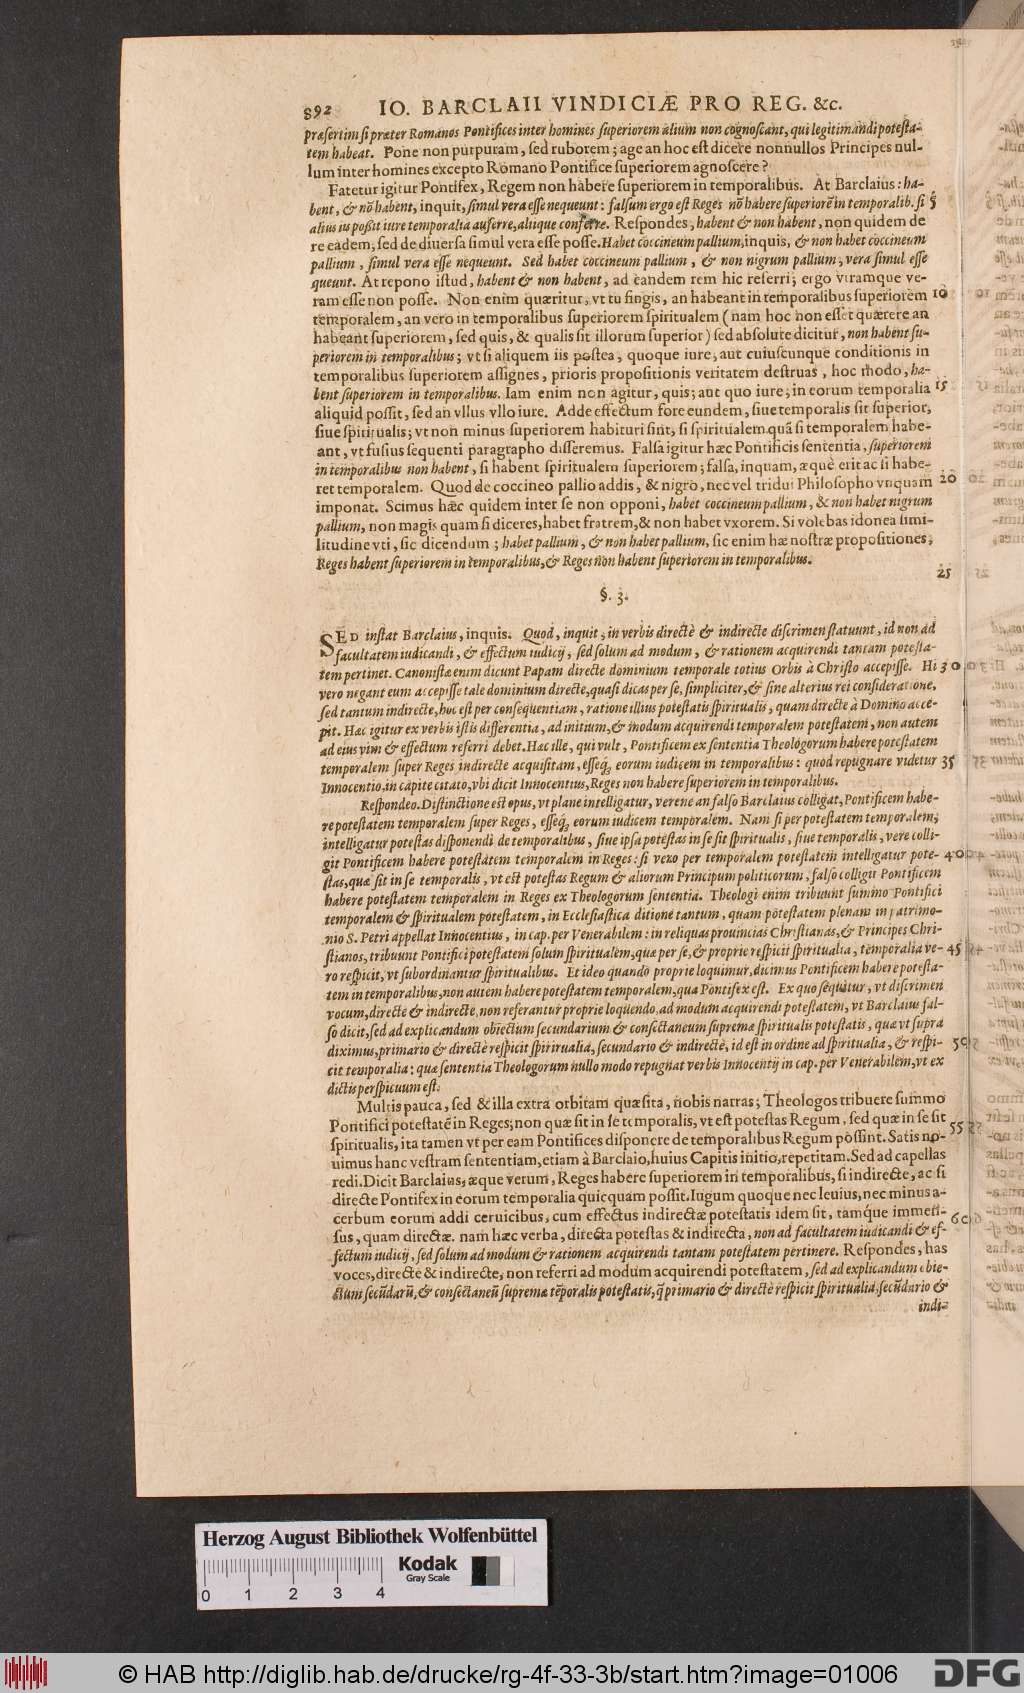 892 IO. BARCLAII VINDICIÆ PRO REG. &c.
præsertim si præter Romanos Pontifices inter homines superiorem alium non cognoscant, qui legitimandi potesta-
tem habeat. Pone non purpuram, sed ruborem; age an hoc est dicere nonnullos Principes nul-
lum inter homines excepto Romano Pontifice superiorem agnoscere?
Fatetur igitur Pontifex, Regem non habere superiorem in temporalibus. At Barclaius: ha-
bent, & nõ habent, inquit, simul vera esse nequeunt: falsum ergo est Reges nõ habere superiorẽ in temporalib. si 5
alius ius possit iure temporalia auferre, aliique conferre. Respondes, habent & non habent, non quidem de
re eadem, sed de diuersa simul vera esse posse. Habet coccineum pallium, inquis, & non habet coccineum
pallium, simul vera esse nequeunt. Sed habet coccineum pallium, & non nigrum pallium, vera simul esse
queunt. At repono istud, habent & non habent, ad eandem rem hic referri; ergo vtramque ve-
ram esse non posse. Non enim quæritur, vt tu fingis, an habeant in temporalibus superiorem 10
temporalem, an vero in temporalibus superiorem spiritualem (nam hoc non esset quærere an
habeant superiorem, sed quis, & qualis sit illorum superior) sed absolute dicitur, non habent su-
periorem in temporalibus; vt si aliquem iis postea, quoque iure, aut cuiuscunque conditionis in
temporalibus superiorem assignes, prioris propositionis veritatem destruas, hoc modo, ha-
bent superiorem in temporalibus. Iam enim non agitur, quis; aut quo iure; in eorum temporalia 15
aliquid possit, sed an vllus vllo iure. Adde effectum fore eundem, siue temporalis sit superior,
siue spiritualis; vt non minus superiorem habituri sint, si spiritualem, quã si temporalem habe-
ant, vt fusius sequenti paragrapho disseremus. Falsa igitur hæc Pontificis sententia, superiorem
in temporalibus non habent, si habent spiritualem superiorem; falsa, inquam, æquè erit ac si habe-
ret temporalem. Quod de coccineo pallio addis, & nigro, nec vel tridui Philosopho vnquam 20
imponat. Scimus hæc quidem inter se non opponi, habet coccineum pallium, & non habet nigrum
pallium, non magis quam si diceres, habet fratrem, & non habet vxorem. Si volebas idonea simi-
litudine vti, sic dicendum; habet pallium, & non habet pallium, sic enim hæ nostræ propositiones,
Reges habent superiorem in temporalibus, & Reges non habent superiorem in temporalibus.
25
§. 3.
SED instat Barclaius, inquis. Quod, inquit, in verbis directè & indirecte discrimen statuunt, id non ad
facultatem iudicandi, & effectum iudicij, sed solum ad modum, & rationem acquirendi tantam potesta-
tem pertinet. Canonistæ enim dicunt Papam directe dominium temporale totius Orbis à Christo accepisse. Hi 30
vero negant eum accepisse tale dominium directe, quasi dicas per se, simpliciter, & sine alterius rei consideratione,
sed tantum indirecte, hoc est per consequentiam, ratione illius potestatis spiritualis, quam directe à Domino acce-
pit. Hæc igitur ex verbis istis differentia, ad initium, & modum acquirendi temporalem potestatem, non autem
ad eius vim & effectum referri debet. Hæc ille, qui vult, Pontificem ex sententia Theologorum habere potestatem
temporalem super Reges indirecte acquisitam, esseq́; eorum iudicem in temporalibus: quod repugnare videtur 35
Innocentio, in capite citato, vbi dicit Innocentius, Reges non habere superiorem in temporalibus.
Respondeo. Distinctione est opus, vt plane intelligatur, verene an falso Barclaius colligat, Pontificem habe-
re potestatem temporalem super Reges, esseq́; eorum iudicem temporalem. Nam si per potestatem temporalem,
intelligatur potestas disponendi de temporalibus, siue ipsa potestas in se sit spiritualis, siue temporalis, vere colli-
git Pontificem habere potestatem temporalem in Reges: si vero per temporalem potestatem intelligatur pote- 40
stas, quæ sit in se temporalis, vt est potestas Regum & aliorum Principum politicorum, falso colligit Pontificem
habere potestatem temporalem in Reges ex Theologorum sententia. Theologi enim tribuunt summo Pontifici
temporalem & spiritualem potestatem, in Ecclesiastica ditione tantum, quam potestatem plenam in patrimo-
nio S. Petri appellat Innocentius, in cap. per Venerabilem: in reliquas prouincias Christianas, & Principes Chri-
stianos, tribuunt Pontifici potestatem solum spiritualem, quæ per se, & proprie respicit spiritualia, temporalia ve- 45
ro respicit, vt subordinantur spiritualibus. Et ideo quando proprie loquimur, dicimus Pontificem habere potesta-
tem in temporalibus, non autem habere potestatem temporalem, qua Pontifex est. Ex quo sequitur, vt discrimen
vocum, directe & indirecte, non referantur proprie loquendo, ad modum acquirendi potestatem, vt Barclaius fal-
so dicit, sed ad explicandum obiectum secundarium & consectaneum supremæ spiritualis potestatis, quæ vt supra
diximus, primario & directè respicit spiritualia, secundario & indirectè, id est in ordine ad spiritualia, & respi- 50
cit temporalia: quæ sententia Theologorum nullo modo repugnat verbis Innocentij in cap. per Venerabilem, vt ex
dictis perspicuum est.
Multis pauca, sed & illa extra orbitam quæsita, nobis narras; Theologos tribuere summo
Pontifici potestatẽ in Reges; non quæ sit in se temporalis, vt est potestas Regum, sed quæ in se sit
spiritualis, ita tamen vt per eam Pontifices disponere de temporalibus Regum possint. Satis no- 55
uimus hanc vestram sententiam, etiam à Barclaio, huius Capitis initio, repetitam. Sed ad capellas
redi. Dicit Barclaius, æque verum, Reges habere superiorem in temporalibus, si indirecte, ac si
directe Pontifex in eorum temporalia quicquam possit. Iugum quoque nec leuius, nec minus a-
cerbum eorum addi ceruicibus, cum effectus indirectæ potestatis idem sit, tamque immen-
sus, quam directæ. nam hæc verba, directa potestas & indirecta, non ad facultatem iudicandi & ef- 60
fectum iudicij, sed solum ad modum & rationem acquirendi tantam potestatem pertinere. Respondes, has
voces, directè & indirecte, non referri ad modum acquirendi potestatem, sed ad explicandum obie-
ctum secũdariũ, & consectaneũ supremæ tẽporalis potestatis, q̃ primario & directè respicit spiritualia, secũdario &
indi-
Herzog August Bibliothek Wolfenbüttel
Kodak
Gray Scale
0 1 2 3 4
© HAB http://diglib.hab.de/drucke/rg-4f-33-3b/start.htm?image=01006
DFG